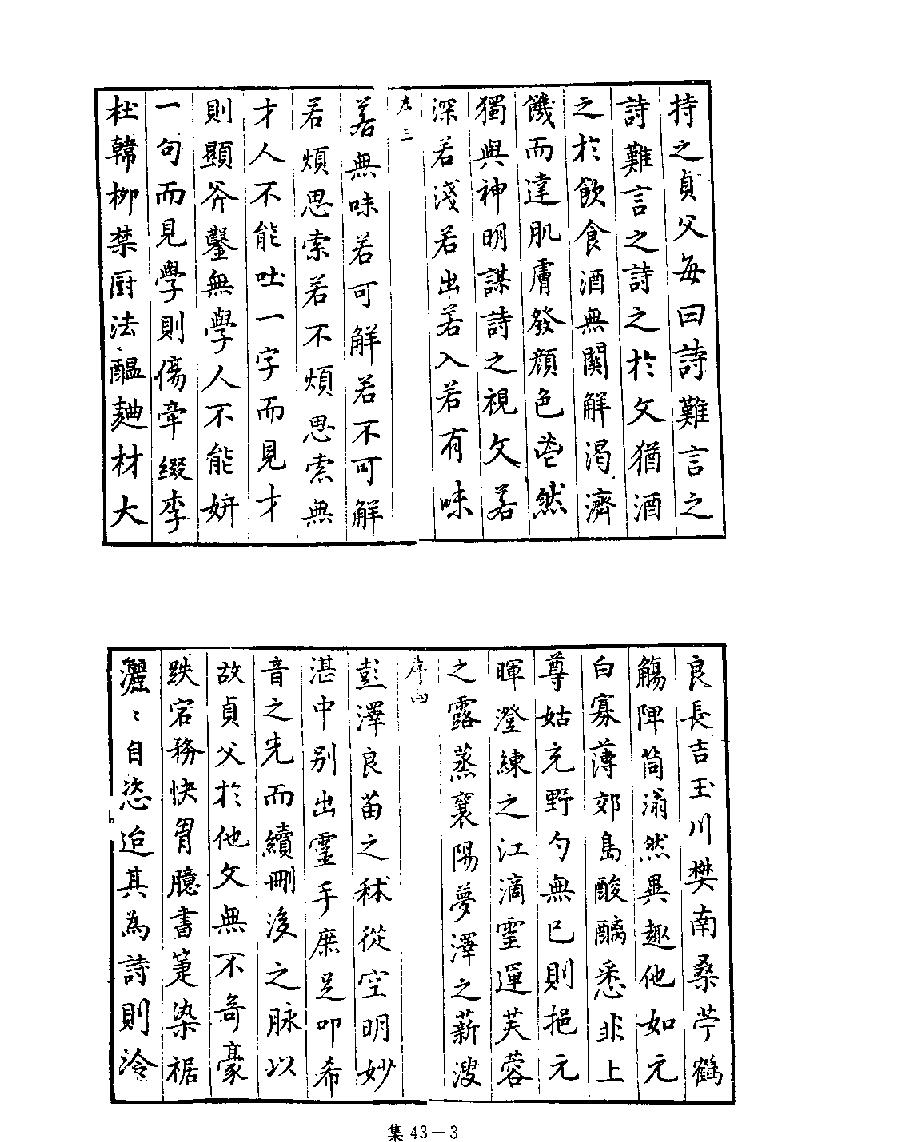 持之貞父每曰詩難言之
詩難言之詩之於文猶酒
之於飲食酒無關解渴濟
饑而達肌膚發顏色茫然
獨與神明謀詩之視文若
深若淺若出若入若有味
序三
若無味若可解若不可解
若煩思索若不煩思索無
才人不能吐一字而見才
則顯斧鑿無學人不能妍
一句而見學則傷章綴李
杜韓柳禁廚法醞麯材大
良長吉玉川樊南桑苧鶴
觴陴筒滃然異趣他如元
白寡薄郊島酸醨悉非上
尊姑充野勺無已則挹元
暉澄練之江滴靈運芙蓉
之露蒸襄陽夢澤之薪溲
序四
彭澤良苗之秫從空明妙
湛中別出靈手庶足叩希
音之先而續刪後之脉以
故貞父於他文無不奇豪
跌宕務快胷臆書筆染裾
灑灑自恣迨其為詩則泠
集 43－3